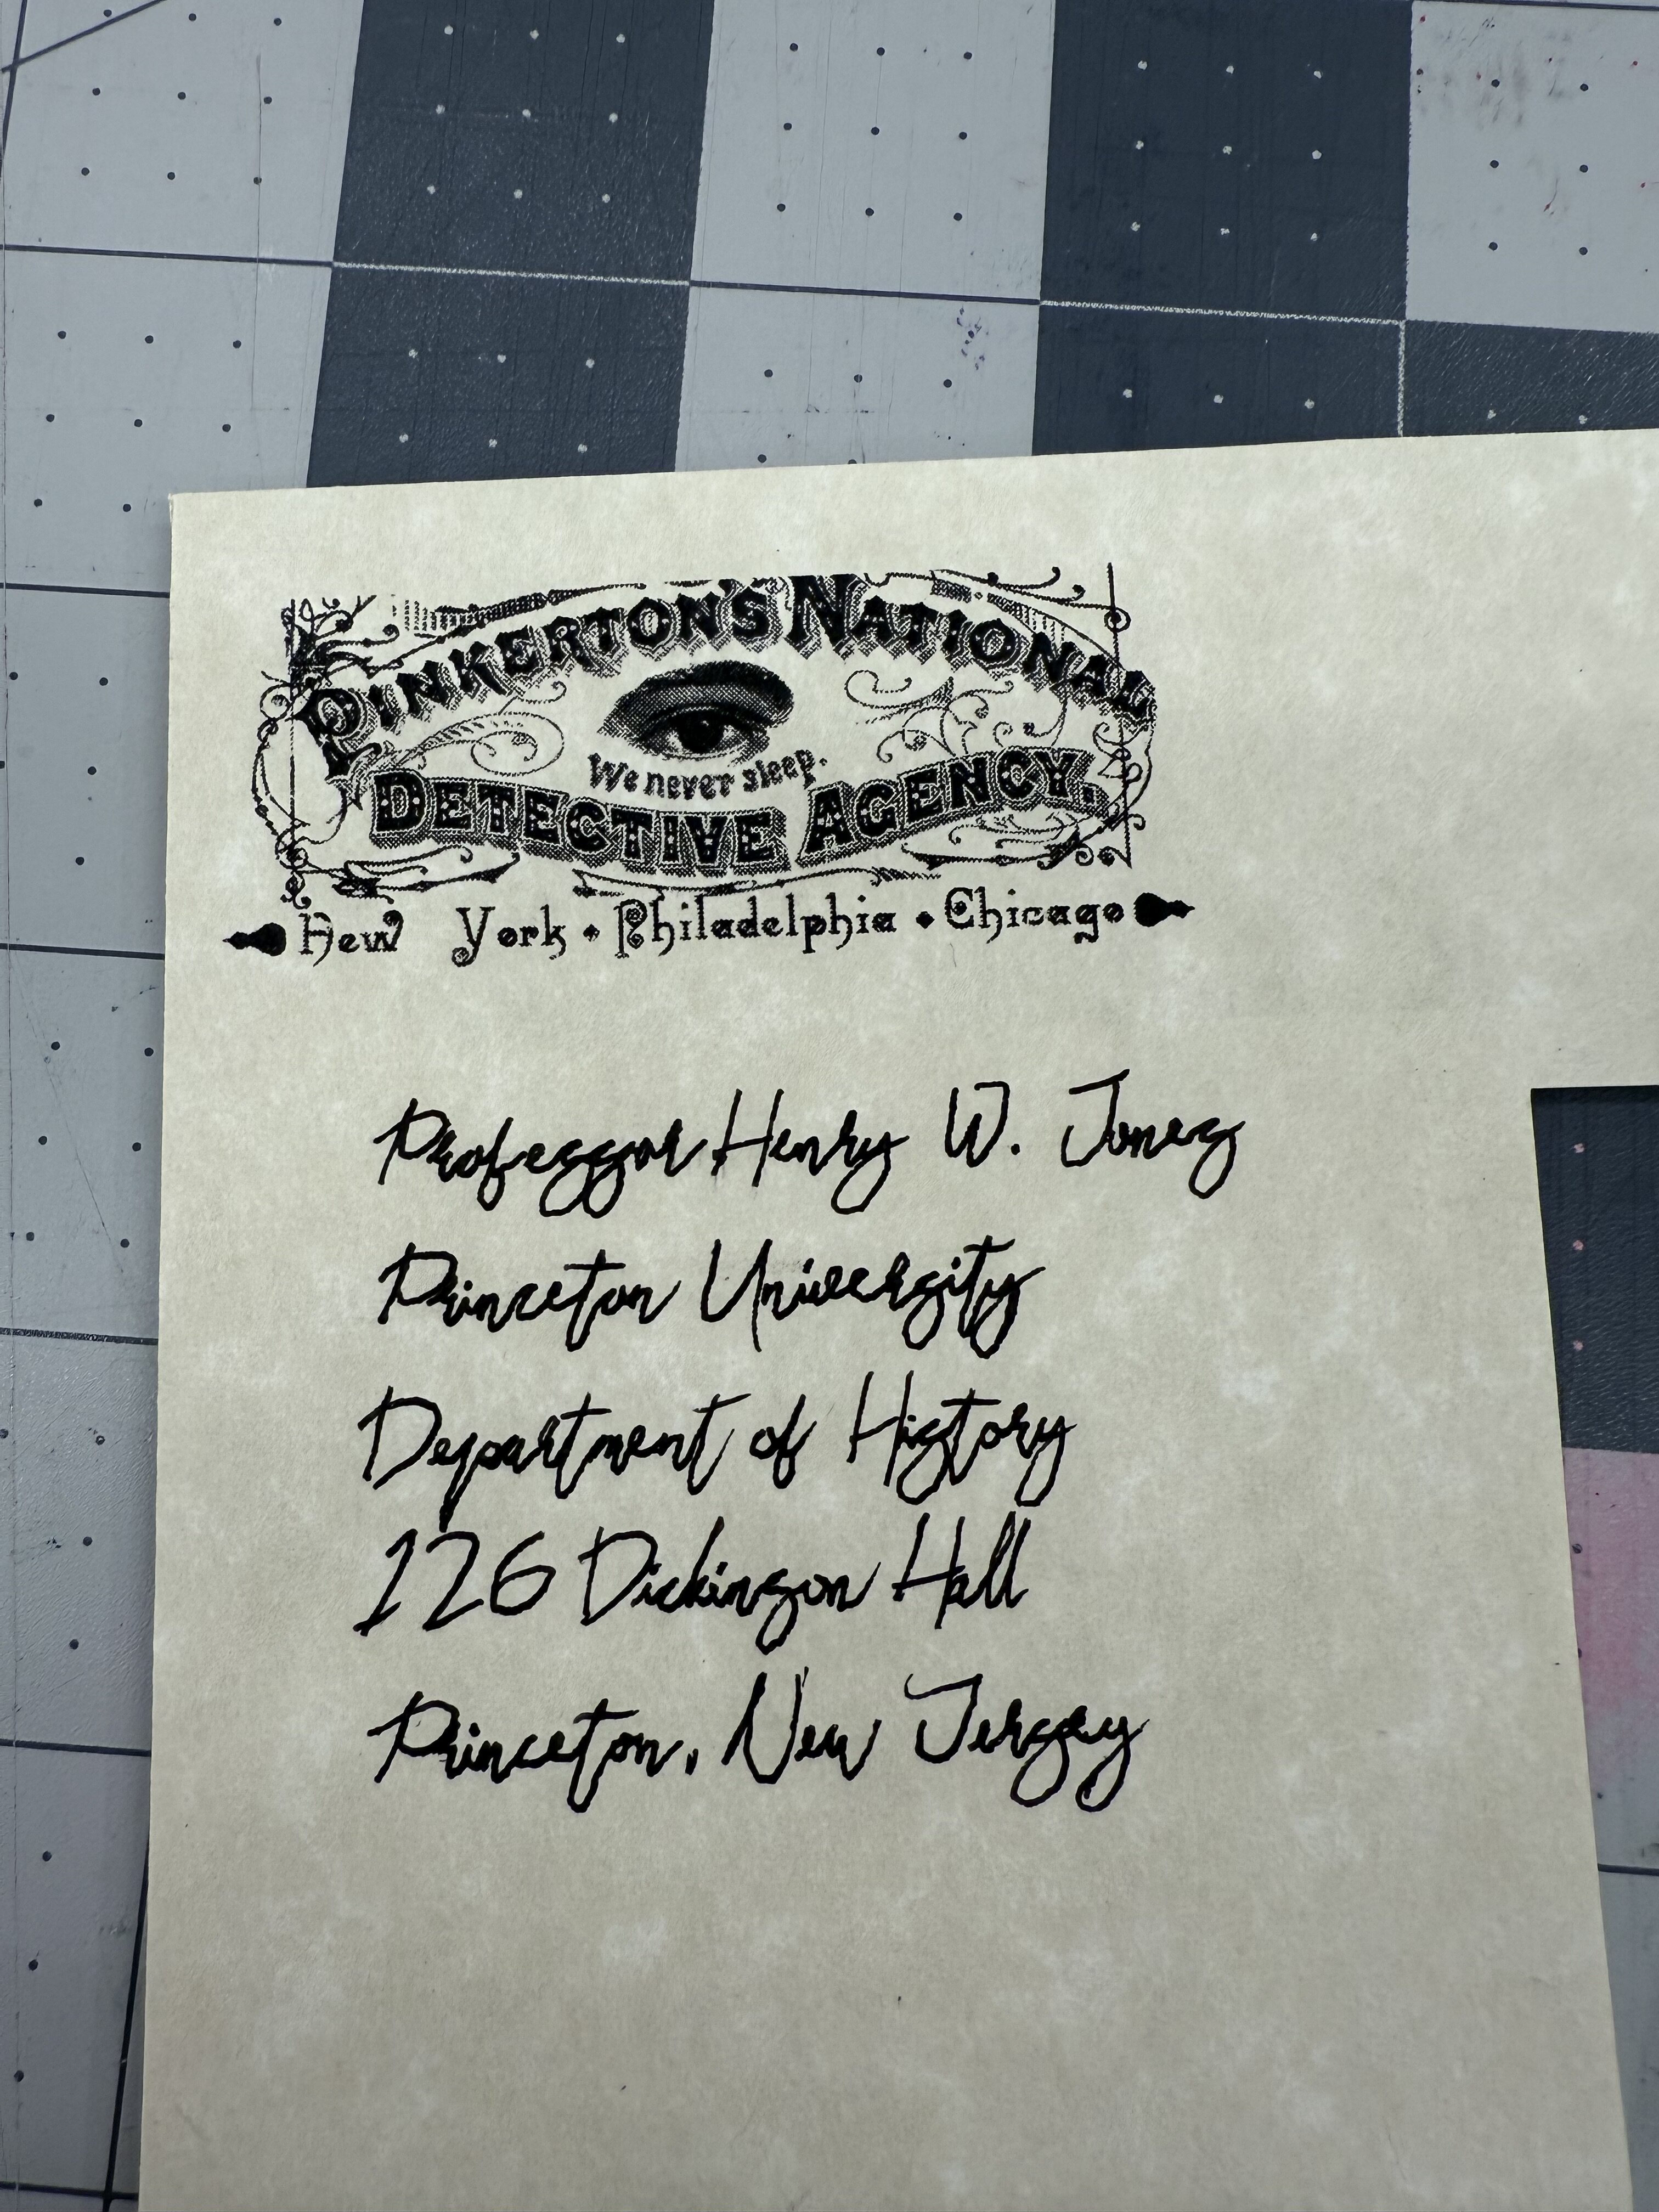 PINKERTON'S NATIONAL
We never sleep.
DETECTIVE AGENCY.
New York • Philadelphia • Chicago
Professor Henry W. Jones
Princeton University
Department of History
126 Dickinson Hall
Princeton, New Jersey